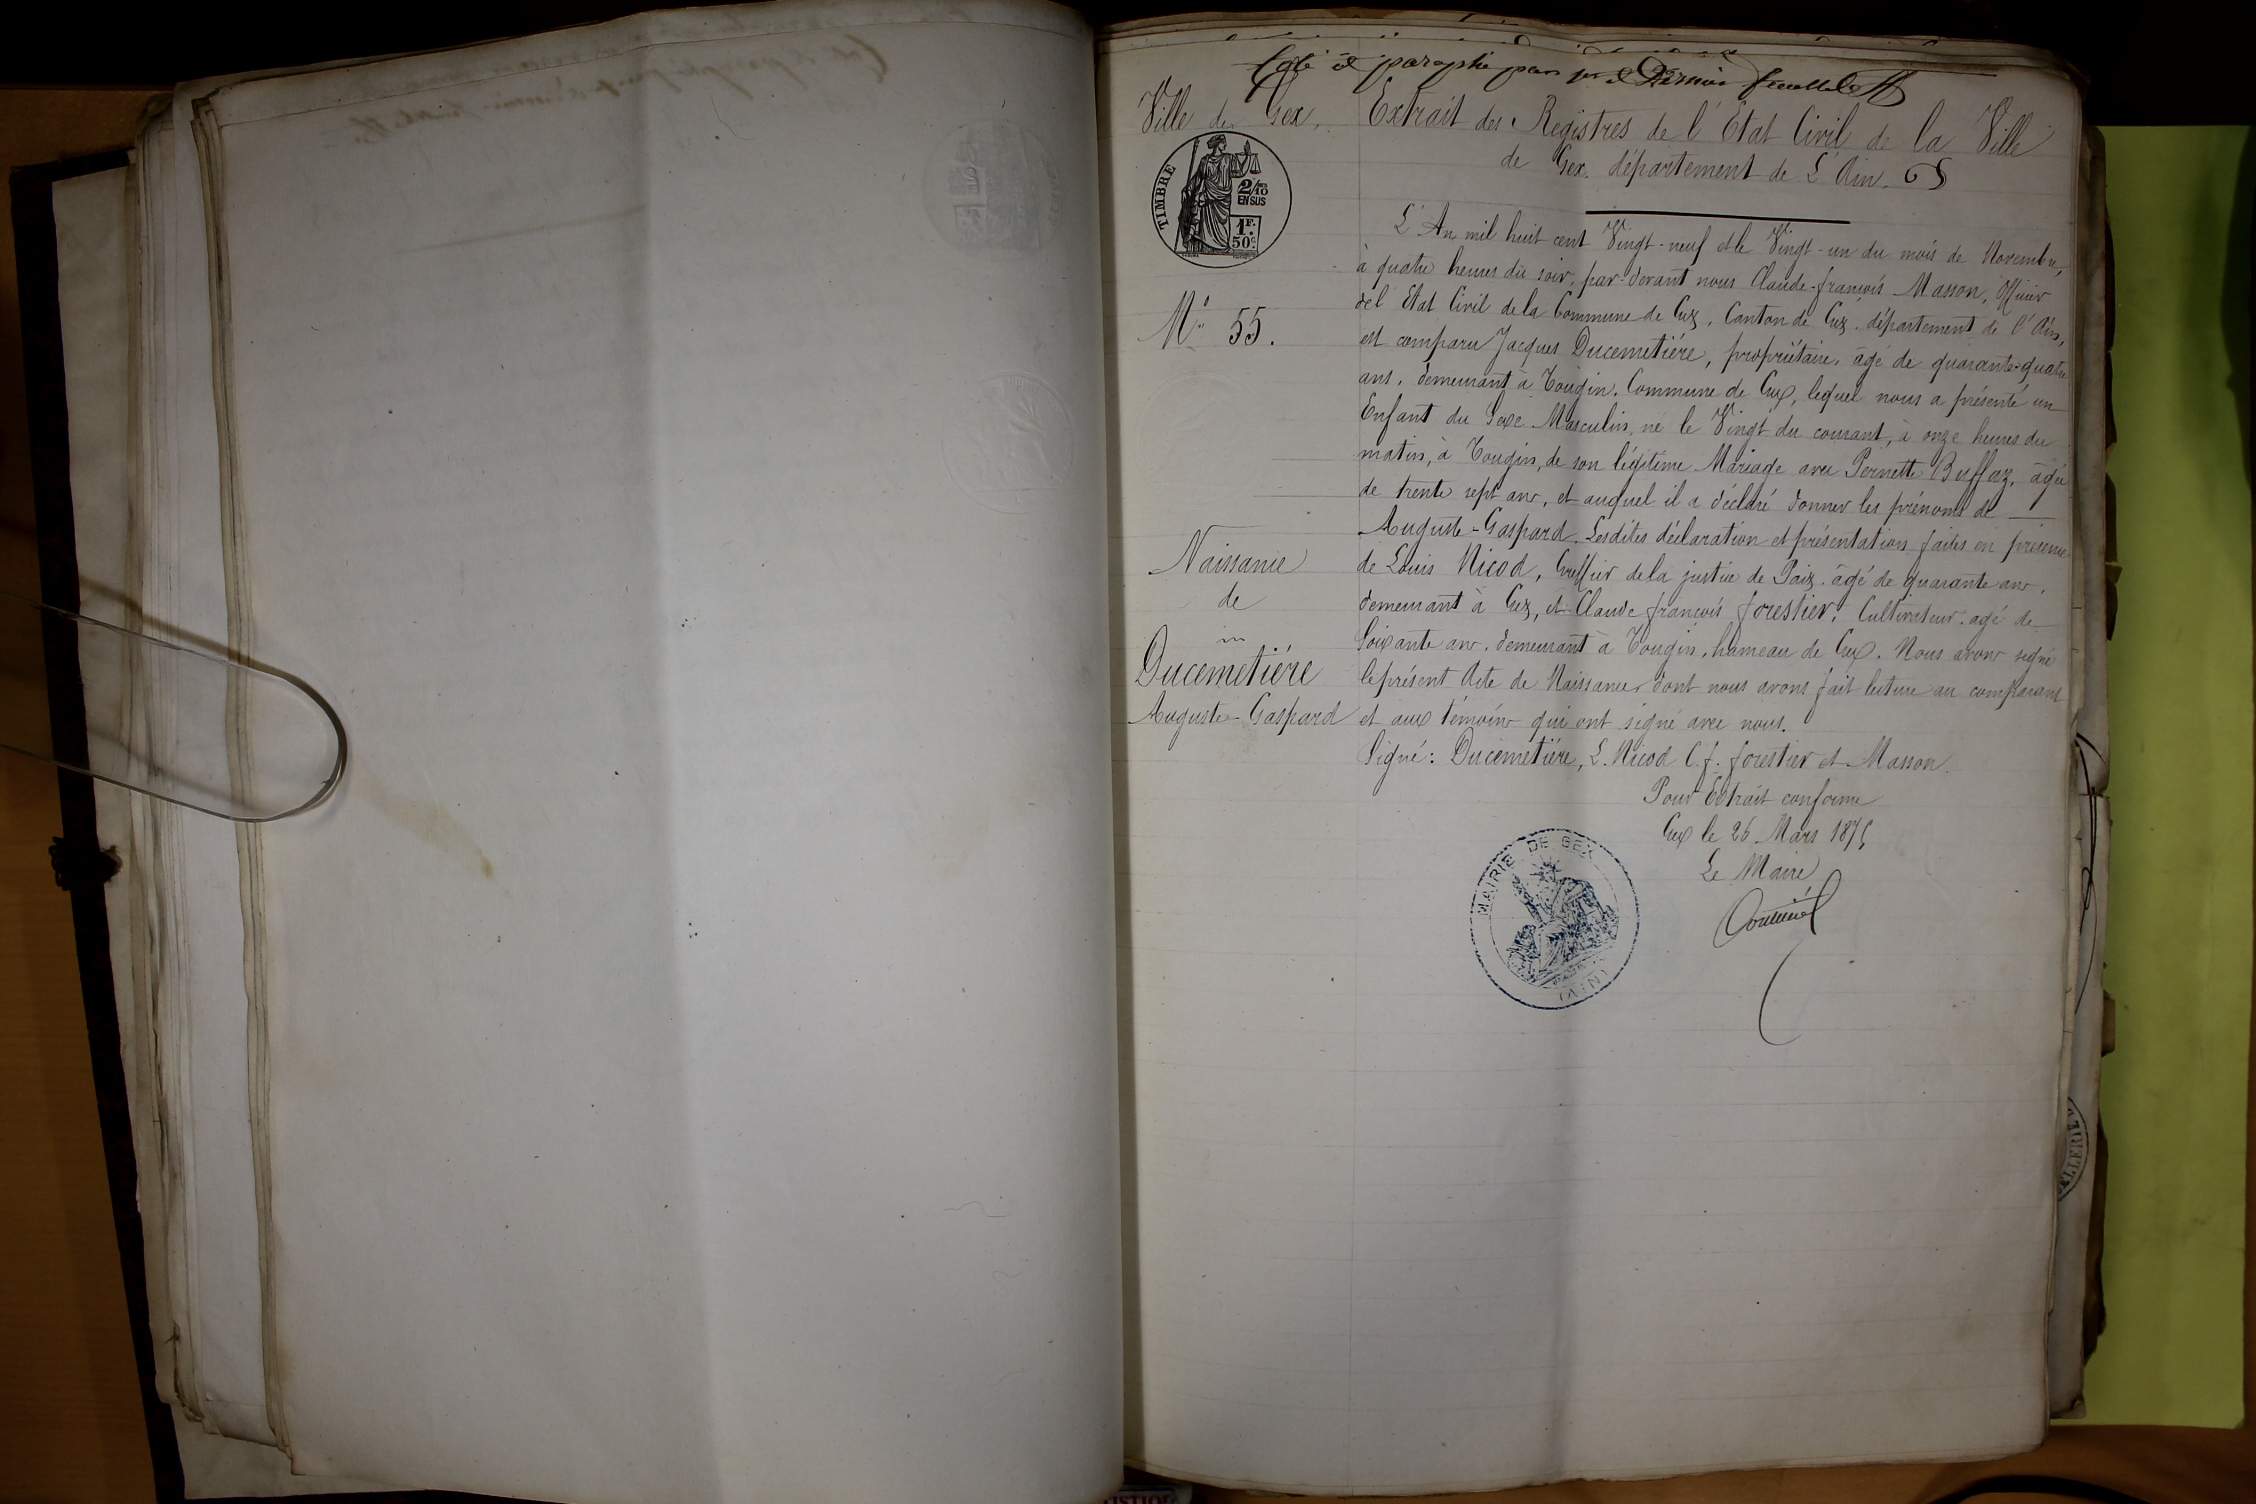 Coté et paraphé par pr et Dernier feuillet
Ville de Gex.
Extrait des Registres de l'Etat Civil de la Ville
de Gex. département de L'Ain.
TIMBRE
2/10
EN SUS
1F.
50c.
L'An mil huit cent Vingt-neuf et le Vingt-un du mois de Novembre,
à quatre heures du soir, par-devant nous Claude-françois Masson, Officier
de l'Etat Civil de la Commune de Gex, Canton de Gex, département de l'Ain,
N° 55.
est comparu Jacques Ducemetiére, propriétaire, âgé de quarante-quatre
ans, demeurant à Tougin, Commune de Gex, lequel nous a présenté un
Enfant du Sexe Masculin, né le Vingt du courant, à onze heures du
matin, à Tougin, de son légitime Mariage avec Pernette Buffaz, âgée
de trente sept ans, et auquel il a déclaré donner les prénoms de
Auguste-Gaspard. Lesdites déclaration et présentation faites en présence
de Louis Nicod, Greffier de la justice de Paix, âgé de quarante ans,
demeurant à Gex, et Claude françois forestier, Cultivateur, agé de
Soixante ans, demeurant à Tougin, hameau de Gex. Nous avons signé
le présent Acte de Naissance, dont nous avons fait lecture au comparant
et aux témoins qui ont signé avec nous.
Signé: Ducemetiére, L. Nicod C. f. forestier et Masson.
Naissance
de
Ducemetiére
Auguste-Gaspard
Pour Extrait conforme
Gex le 26 Mars 1875
Le Maire
MAIRIE DE GEX
(AIN)